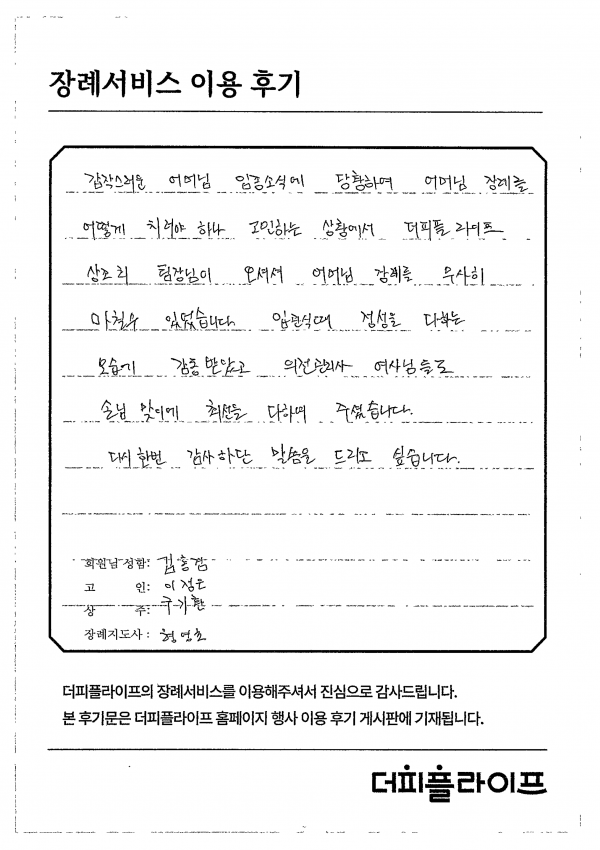 장례서비스 이용 후기
갑작스러운 어머님 임종소식에 당황하여 어머님 장례를
어떻게 치러야 하나 고민하는 상황에서 더피플 라이프
상조의 팀장님이 오셔서 어머님 장례를 무사히
마칠수 있었습니다. 입관식때 정성을 다하는
모습에 감동 받았고 의전관리사 여사님들도
손님 맞이에 최선을 다하여 주셨습니다.
다시한번 감사하단 말씀을 드리고 싶습니다.
회원님 성함:
고 인: 이정은
상 주:
장례지도사:
더피플라이프의 장례서비스를 이용해주셔서 진심으로 감사드립니다.
본 후기문은 더피플라이프 홈페이지 행사 이용 후기 게시판에 기재됩니다.
더피플라이프